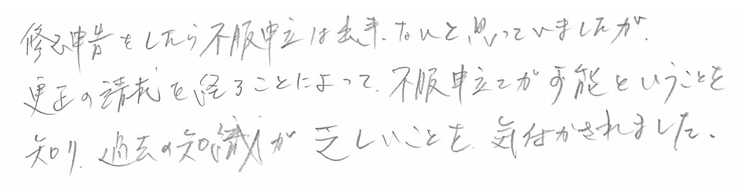 修正申告をしたら不服申立は出来ないと思っていましたが、
更正の請求を経ることによって、不服申立てが可能ということを
知り、過去の知識が乏しいことを気付かされました。